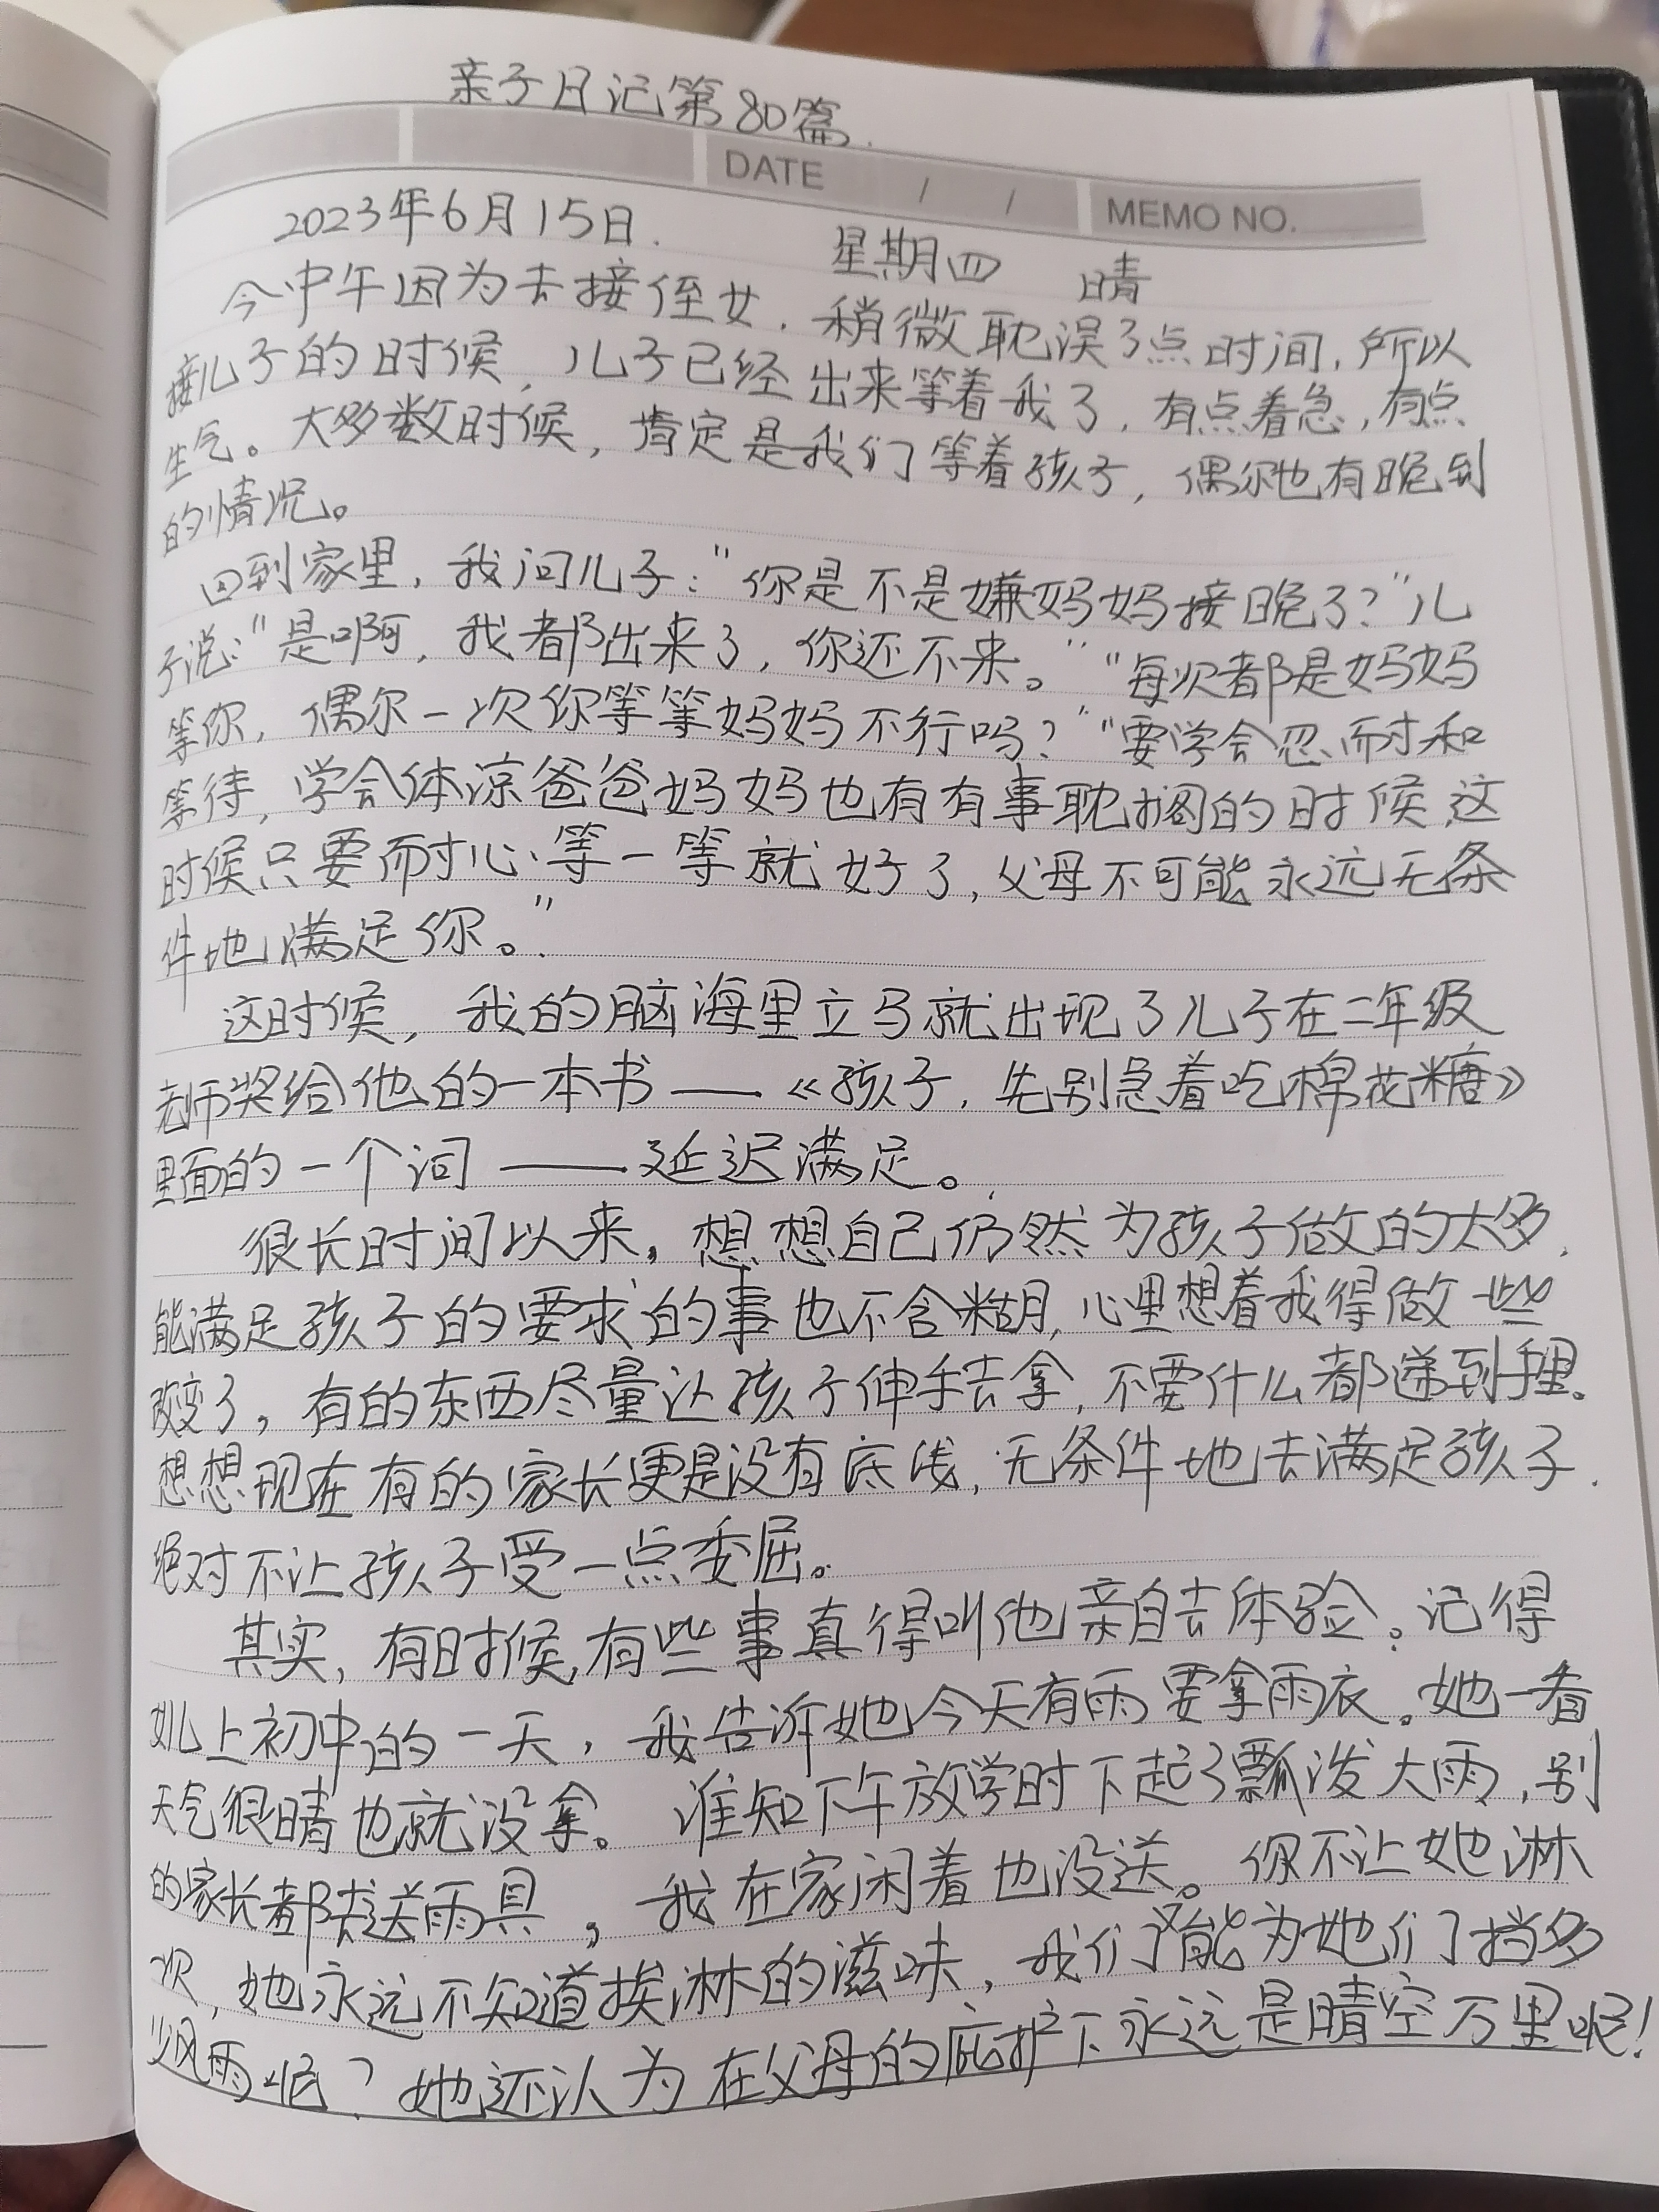 亲子日记第80篇.
DATE / / MEMO NO.
2023年6月15日. 星期四 晴
今中午因为去接侄女,稍微耽误了点时间,所以
接儿子的时候,儿子已经出来等着我了,有点着急,有点
生气。大多数时候,肯定是我们等着孩子,偶尔也有晚到
的情况。
回到家里,我问儿子:"你是不是嫌妈妈接晚了?"儿
子说:"是啊,我都出来了,你还不来。""每次都是妈妈
等你,偶尔一次你等等妈妈不行吗?""要学会忍耐和
等待,学会体凉爸爸妈妈也有有事耽搁的时候,这
时候只要耐心等一等就好了,父母不可能永远无条
件地满足你。"
这时候,我的脑海里立马就出现了儿子在二年级
老师奖给他的一本书——《孩子,先别急着吃棉花糖》
里面的一个词——延迟满足。
很长时间以来,想想自己仍然为孩子做的太多,
能满足孩子的要求的事也不含糊,心里想着我得做一些
改变了,有的东西尽量让孩子伸手去拿,不要什么都递到手里.
想想现在有的家长更是没有底线,无条件地去满足孩子.
绝对不让孩子受一点委屈。
其实,有时候,有些事真得叫他亲自去体验。记得
女儿上初中的一天,我告诉她今天有雨要拿雨衣。她一看
天气很晴也就没拿。谁知下午放学时下起了瓢泼大雨,别
的家长都去送雨具,我在家闲着也没送。你不让她淋
次,她永远不知道挨淋的滋味,我们又能为她们挡多
少风雨呢?她还认为在父母的庇护下永远是晴空万里呢!